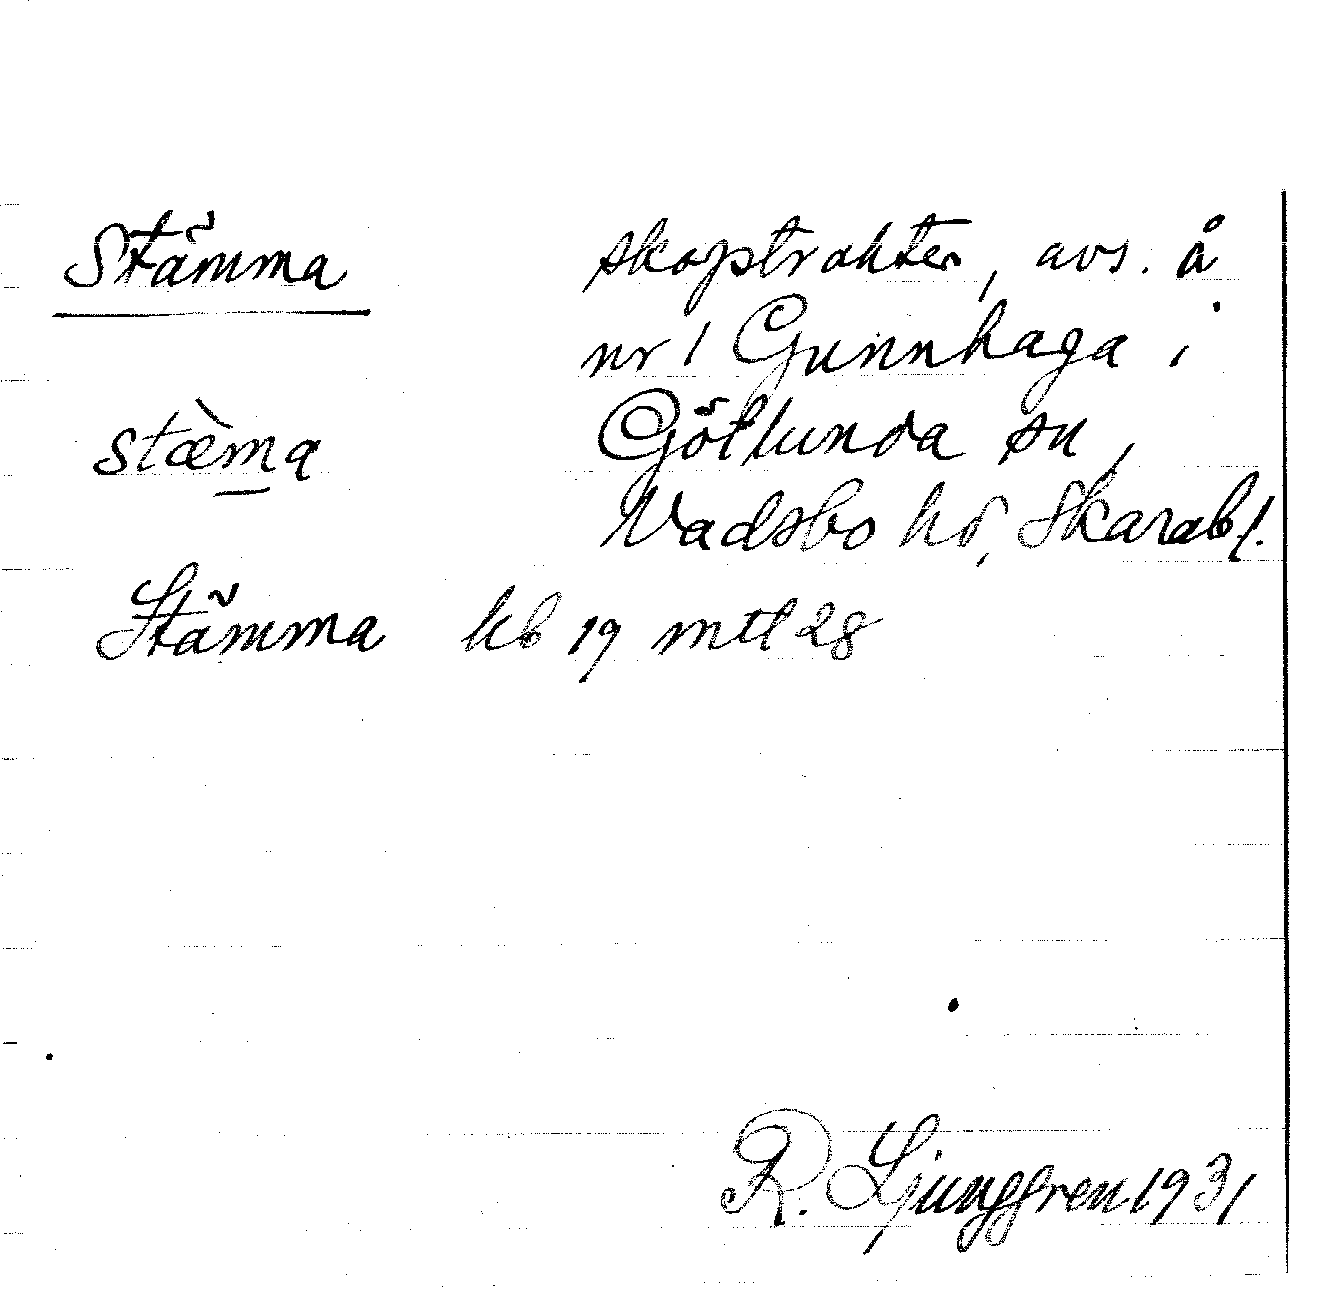 Stämma skogstrakten, avs. å
nr 1 Gunnhaga i
stæ̀m̲a Götlunda sn,
Vadsbo hd, Skarab l.
Stämma kb 19 mtl 28
R. Ljunggren 1931